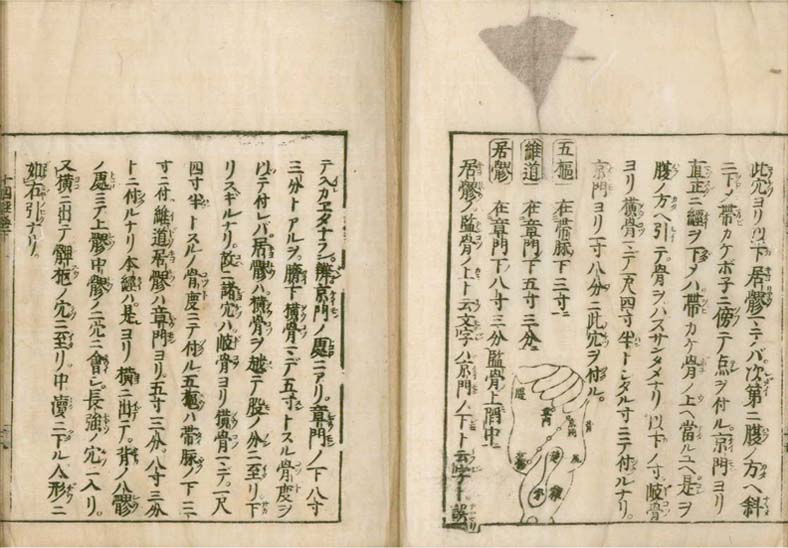 此穴ヨリ以下居髎マデハ次第ニ腹ノ方ヘ斜
ニ下ノ帯カケボ子ニ傍テ点ヲ付ル京門ヨリ
直正ニ經ヲ下タハ帯カケ骨ノ上ヘ當ルユヘ是ヲ
腹ノ方ヘ引テ骨ヲハズサンタメナリ以下ノ寸岐骨
ヨリ横骨マデ一尺四寸半トシタル寸ニテ付ルナリ
京門ヨリ一寸八分ニ此穴ヲ付ル。
五樞 在帯脉下三寸ニ
維道 在章門下五寸三分ニ
居髎 在章門下八寸三分監骨上陷中ニ
居髎ノ監骨ノ上ト云文字ハ京門ノ下ト云字ト誤
テヘカエタナラン辨京門ノ處ニアリ。章門ノ下八寸
三分トアルヲ臍下横骨マデ五寸トスル骨度ヲ
以テ付レバ居髎ハ横骨ヲ越テ股ノ分ニ至リ下
リスギルナリ。故ニ諸穴ハ岐骨ヨリ横骨マデ一尺
四寸半トスルノ骨度ニテ付ル五樞ハ帯脉ノ下三
寸ニ付維道居髎ハ章門ヨリ五寸三分。八寸三分
トニ付ルナリ本經ハ是ヨリ横ニ出テ。背ノ八髎
ノ處ニテ上髎中髎ノ二穴ニ會シ長強ノ穴ニ入リ。
又横ニ出テ髀樞ノ穴ニ至リ中瀆ニ下ル人形ニ
如右引ナリ。
章門
京門
背